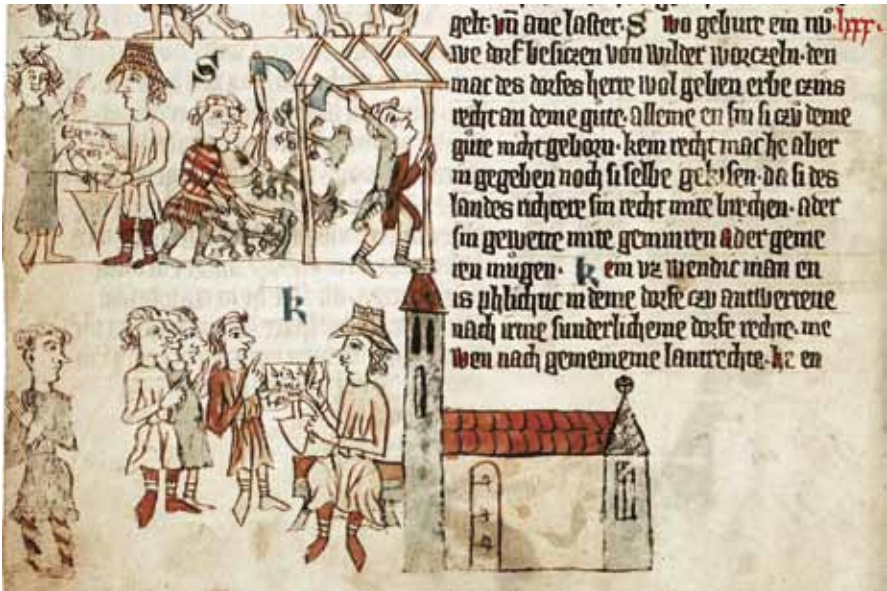 gelt · vn̄ ane laster · S wo gebure ein nu- lxxx·
we dorf besiczen von wilder worczeln · den
mac des dorfes herre wol geben erbe czins
recht an deme gute · alleine en sin si czu deme
gute nicht geborn · kein recht mac he aber
in gegeben noch si selbe gekisen · da si des
landes richtere sin recht mite brechen · ader
sin gewette mite geminren ader geme
ren mugen · k ein vz wendic man en
is phlichtic in deme dorfe czu antwertene
nach irme sunderlicheme dorfe rechte · me
wen nach gemeineme lantrechte · kz en
S
k